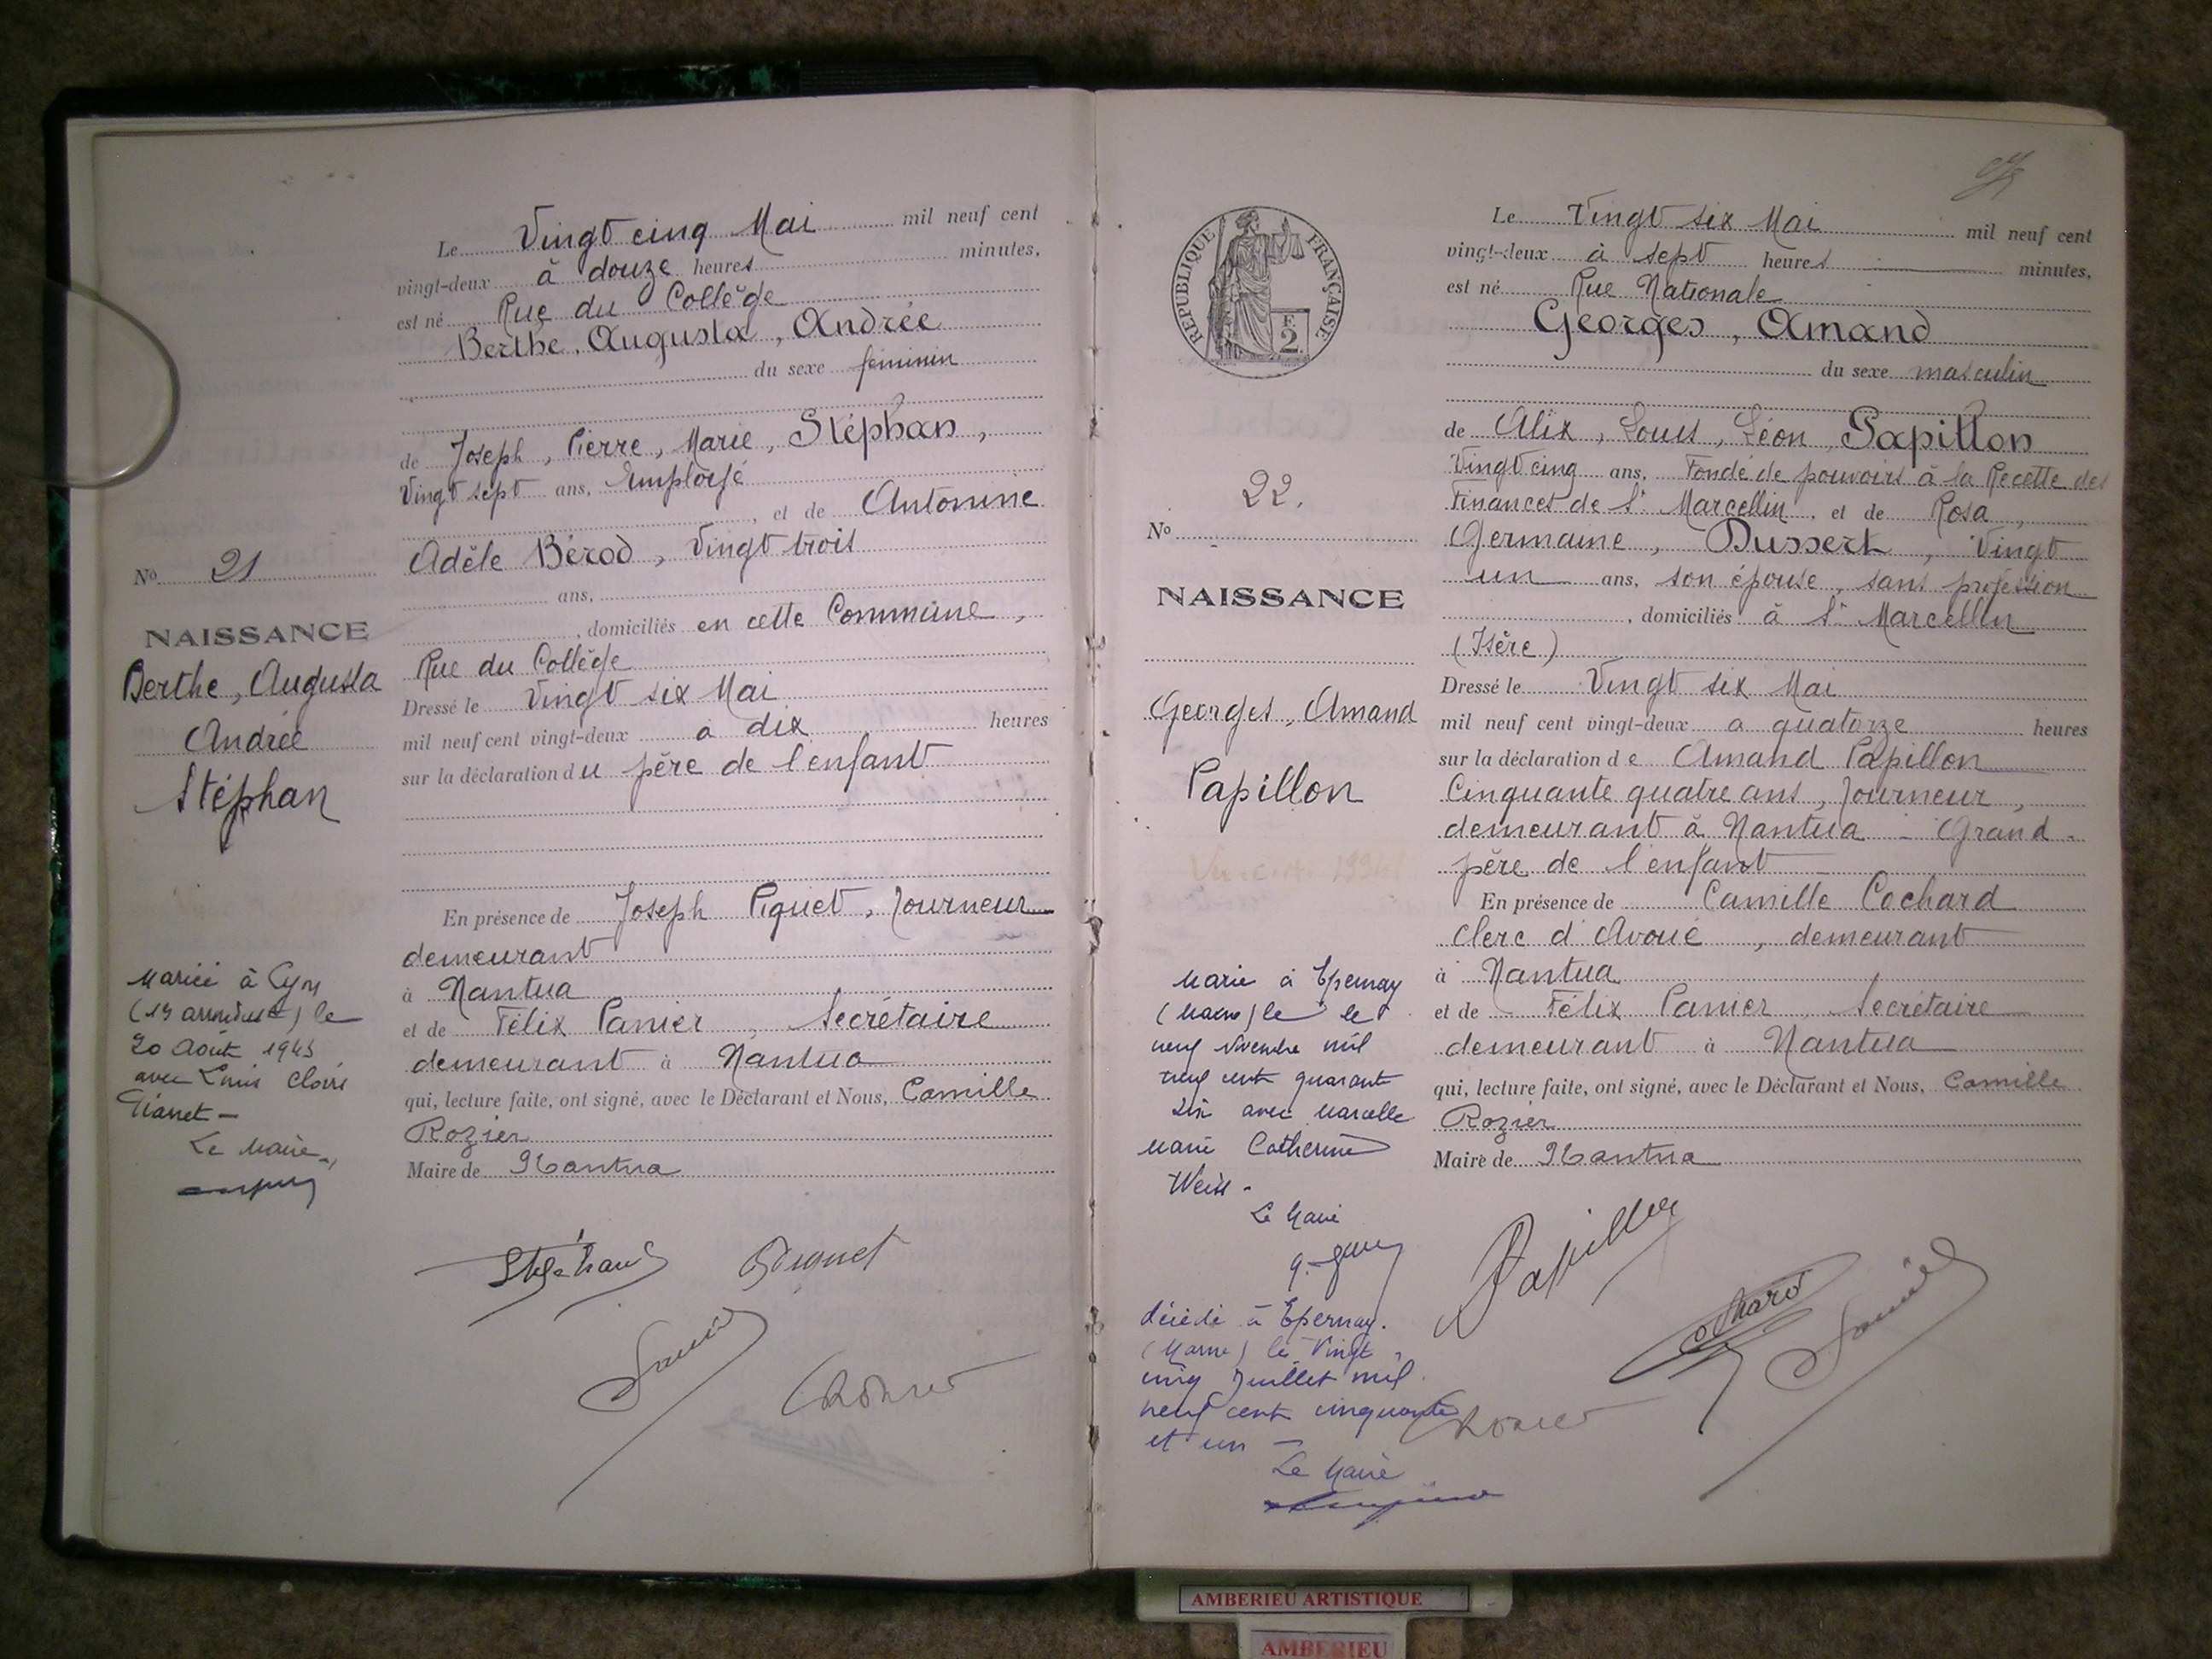 Le Vingt cinq Mai mil neuf cent
vingt-deux à douze heures minutes,
est né Rue du Collège
Berthe, Augusta, Andrée
du sexe féminin
de Joseph, Pierre, Marie, Stéphan,
Vingt sept ans, Employé
, et de Antonine
Adèle Bérod, Vingt trois
ans,
, domiciliés en cette Commune,
Rue du Collège
Dressé le Vingt six Mai
mil neuf cent vingt-deux à dix heures
sur la déclaration du père de l'enfant
En présence de Joseph Piquet, Tourneur
demeurant
à Nantua
et de Félix Panier, Secrétaire
demeurant à Nantua
qui, lecture faite, ont signé, avec le Déclarant et Nous, Camille
Rozier
Maire de Nantua
No 21
NAISSANCE
Berthe, Augusta
Andrée
Stéphan
Mariée à Lyon
le
20 Août 1943
avec Louis
Le Maire
Stéphan Piquet
REPUBLIQUE FRANÇAISE
F.
2
22.
No
NAISSANCE
Georges, Amand
Papillon
Marié à Epernay
(Marne) le le
neuf novembre mil
neuf cent quarant
six avec Marcelle
Marie Catherine
Weiss -
Le Maire
décédé à Epernay.
(Marne) le Vingt
cinq Juillet mil
neuf cent cinquante
et un -
Le Maire
Le Vingt six Mai mil neuf cent
vingt-deux à sept heures minutes,
est né Rue Nationale
Georges, Amand
du sexe masculin
de Alix, Louis, Léon, Papillon
Vingt cinq ans, Fondé de pouvoirs à la Recette des
Finances de St Marcellin, et de Rosa,
Germaine, Dussert, Vingt
un ans, son épouse, sans profession
, domiciliés à St Marcellin
(Isère)
Dressé le Vingt six Mai
mil neuf cent vingt-deux à quatorze heures
sur la déclaration de Amand Papillon
Cinquante quatre ans, Tourneur,
demeurant à Nantua - Grand-
père de l'enfant
En présence de Camille Cochard
Clerc d'Avoué, demeurant
à Nantua
et de Félix Panier, Secrétaire
demeurant à Nantua
qui, lecture faite, ont signé, avec le Déclarant et Nous, Camille
Rozier
Maire de Nantua
Papillon
AMBERIEU ARTISTIQUE
AMBERIEU